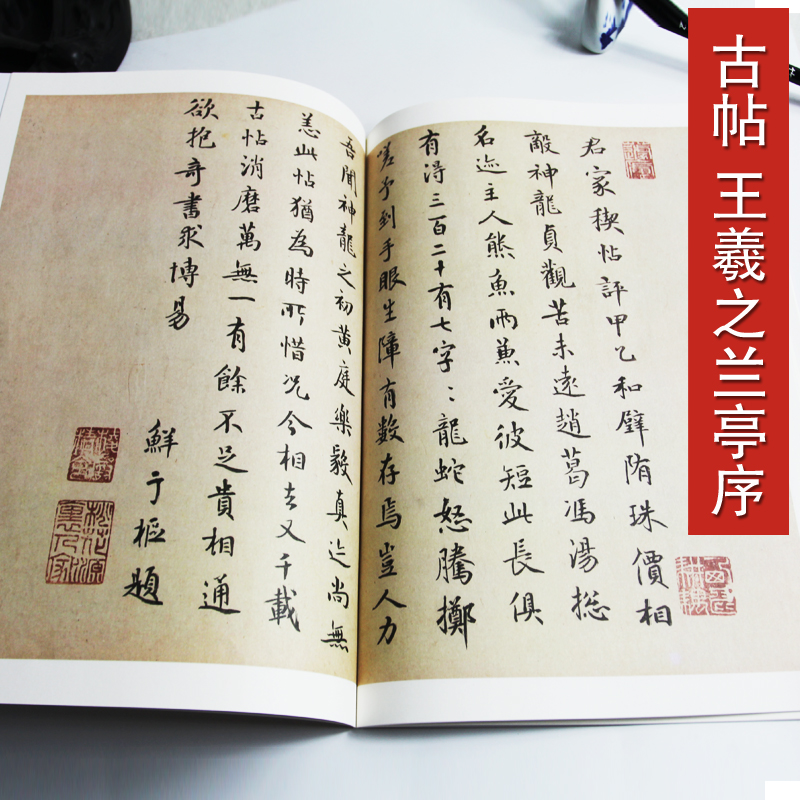 古帖 王羲之兰亭序
君家稧帖評甲乙和璧陏珠價相
敵神龍貞觀苦未遠趙葛馮湯揔
名迹主人熊魚兩兼愛彼短此長俱
有得三百二十有七字〻龍蛇怒騰擲
嗟予到手眼生障有數存焉豈人力
吾聞神龍之初黃庭樂毅真迹尚無
恙此帖猶為時所惜況今相去又千載
古帖消磨萬無一有餘不足貴相通
欲抱奇書求博易
鮮于樞題
桃花源裏人家